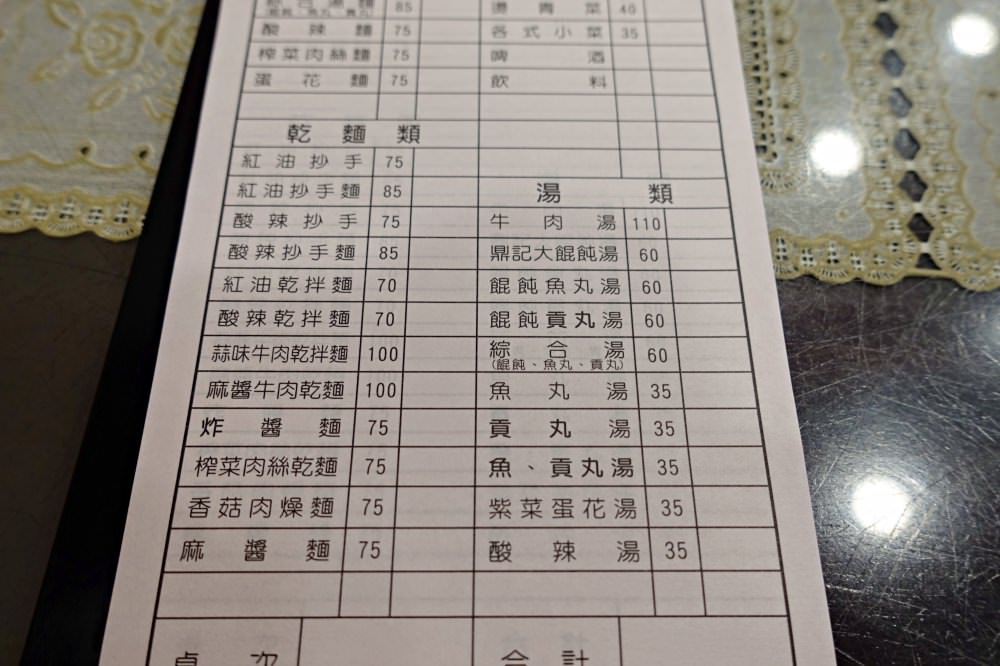 綜合湯麵 85
(餛飩、魚丸、貢丸)
酸辣麵 75
榨菜肉絲麵 75
蛋花麵 75
乾麵類
紅油抄手 75
紅油抄手麵 85
酸辣抄手 75
酸辣抄手麵 85
紅油乾拌麵 70
酸辣乾拌麵 70
蒜味牛肉乾拌麵 100
麻醬牛肉乾麵 100
炸醬麵 75
榨菜肉絲乾麵 75
香菇肉燥麵 75
麻醬麵 75
燙青菜 40
各式小菜 35
啤酒
飲料
湯類
牛肉湯 110
鼎記大餛飩湯 60
餛飩魚丸湯 60
餛飩貢丸湯 60
綜合湯 60
(餛飩、魚丸、貢丸)
魚丸湯 35
貢丸湯 35
魚、貢丸湯 35
紫菜蛋花湯 35
酸辣湯 35
桌次
合計